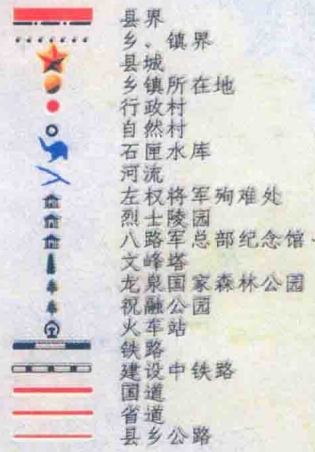 县界
乡、镇界
县城
乡镇所在地
行政村
自然村
石匣水库
河流
左权将军殉难处
烈士陵园
八路军总部纪念馆
文峰塔
龙泉国家森林公园
祝融公园
火车站
铁路
建设中铁路
国道
省道
县乡公路